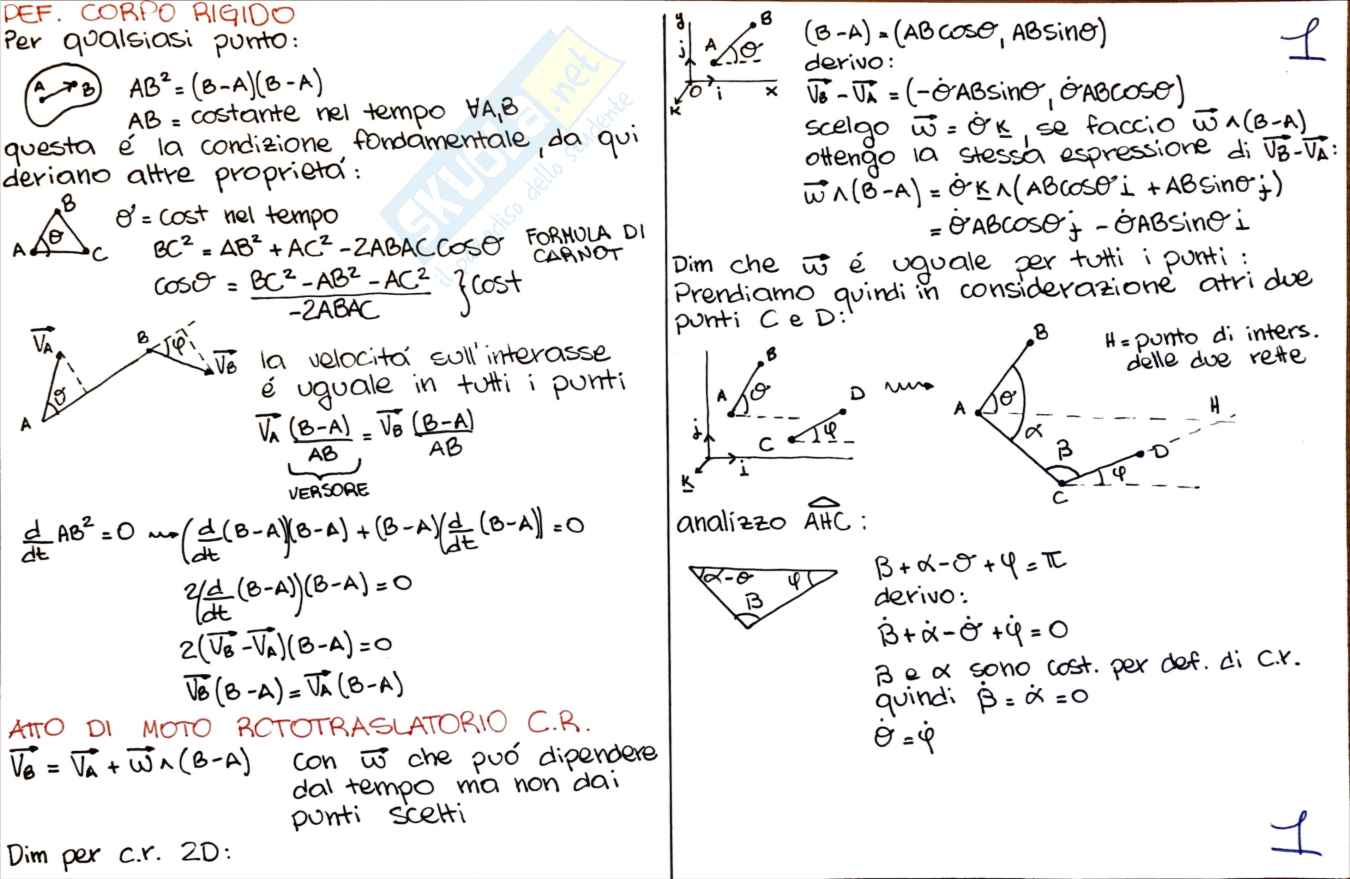 DEF. CORPO RIGIDO
Per qualsiasi punto:
A B
AB² = (B-A)(B-A)
AB = costante nel tempo ∀A,B
questa é la condizione fondamentale, da qui
deriano altre proprietá:
A B C θ
θ = cost nel tempo
BC² = AB² + AC² - 2ABAC cosθ FORMULA DI CARNOT
cosθ = (BC² - AB² - AC²)/(-2ABAC) } cost
V⃗_A B φ V⃗_B A θ
la velocitá sull'interasse
é uguale in tutti i punti
V⃗_A (B-A)/AB = V⃗_B (B-A)/AB
VERSORE
d/dt AB² = 0 ⇝ (d/dt (B-A))(B-A) + (B-A)(d/dt (B-A)) = 0
2(d/dt (B-A))(B-A) = 0
2(V⃗_B - V⃗_A)(B-A) = 0
V⃗_B (B-A) = V⃗_A (B-A)
ATTO DI MOTO ROTOTRASLATORIO C.R.
V⃗_B = V⃗_A + w⃗ ∧ (B-A) con w⃗ che puó dipendere
dal tempo ma non dai
punti scelti
Dim per c.r. 2D:
SKUOLA.net
il paradiso dello studente
y j A B θ O i x K
1
(B-A) = (ABcosθ, ABsinθ)
derivo:
V⃗_B - V⃗_A = (-θ̇ABsinθ, θ̇ABcosθ)
scelgo w⃗ = θ̇ K, se faccio w⃗ ∧ (B-A)
ottengo la stessa espressione di V⃗_B - V⃗_A:
w⃗ ∧ (B-A) = θ̇ K ∧ (ABcosθ i + ABsinθ j)
= θ̇ABcosθ j - θ̇ABsinθ i
Dim che w⃗ é uguale per tutti i punti:
Prendiamo quindi in considerazione atri due
punti C e D:
A B θ C D φ j i K
A B θ α β C D φ H
H = punto di inters.
delle due rette
analizzo AĤC:
α-θ φ β
β + α - θ + φ = π
derivo:
β̇ + α̇ - θ̇ + φ̇ = 0
β e α sono cost. per def. di C.r.
quindi β̇ = α̇ = 0
θ̇ = φ̇
1